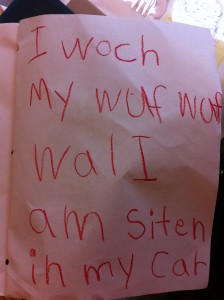 I woch
my wuf wuf
wal I
am siten
in my car